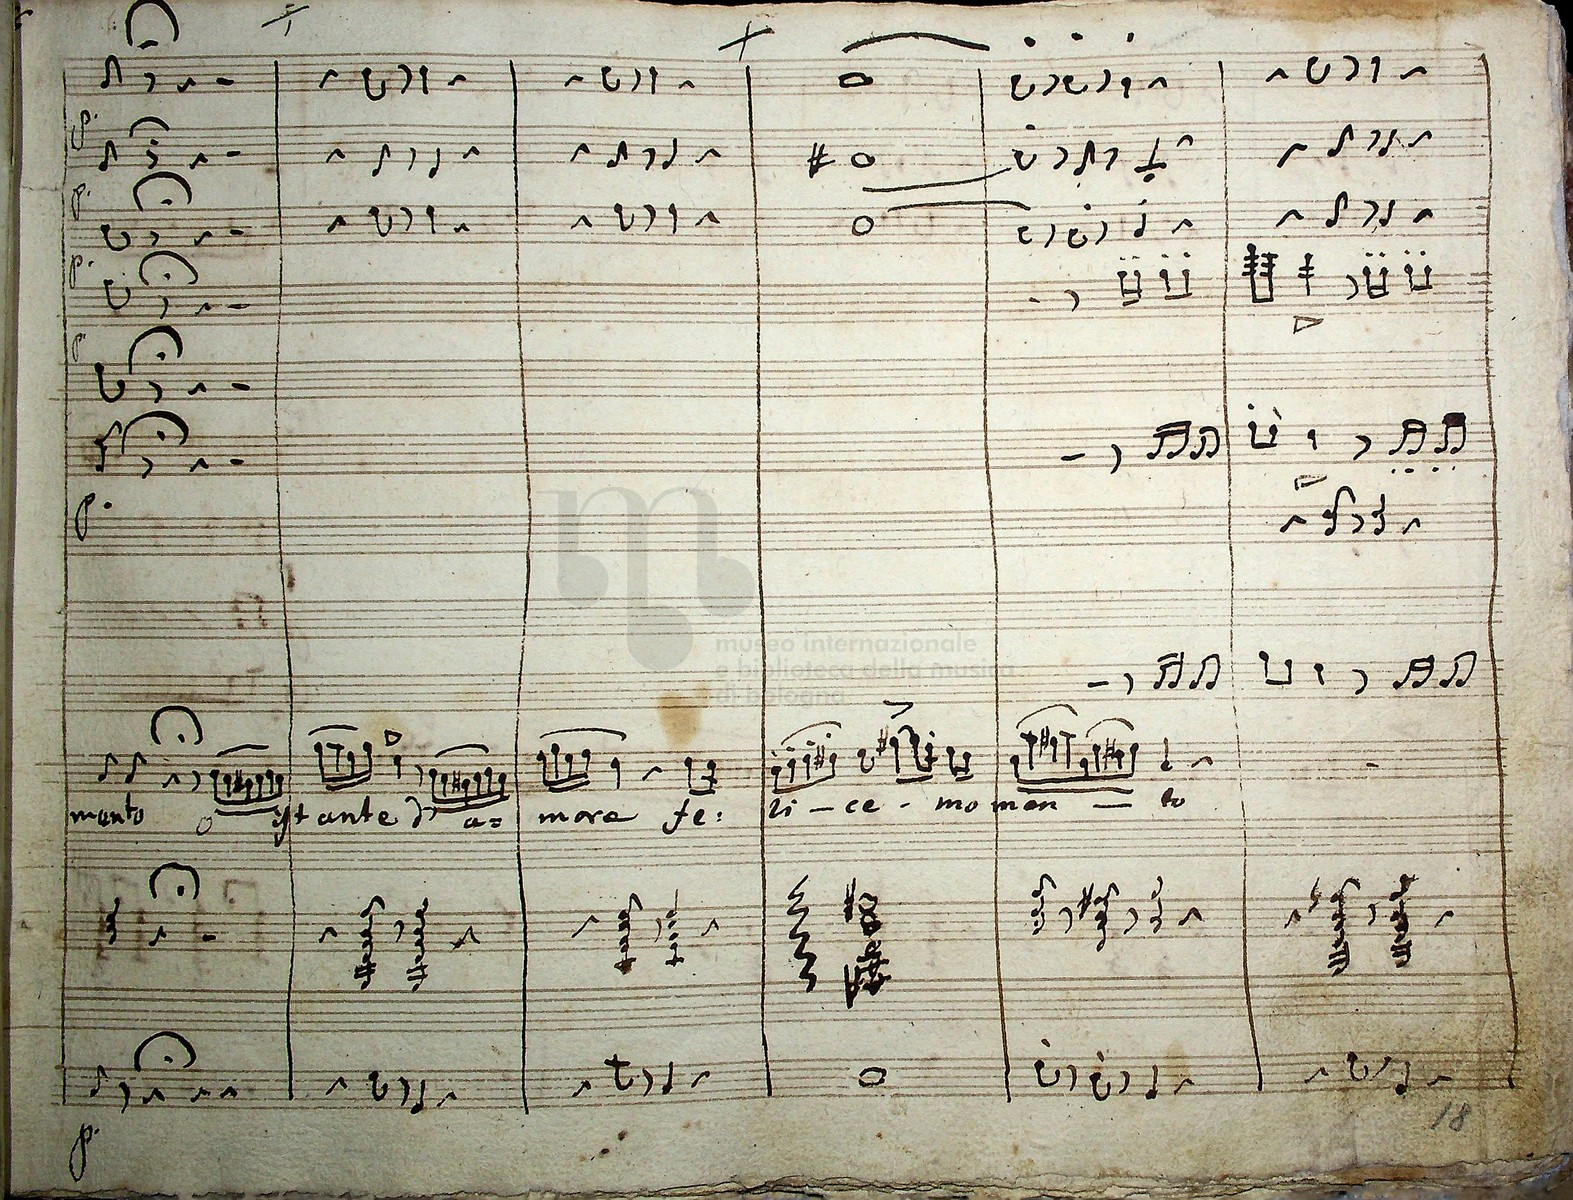 p.
p.
p.
p
p.
museo internazionale
e biblioteca della musica
di bologna
mento o istante d' a= more fe: li - ce - mo men - to
18
p.